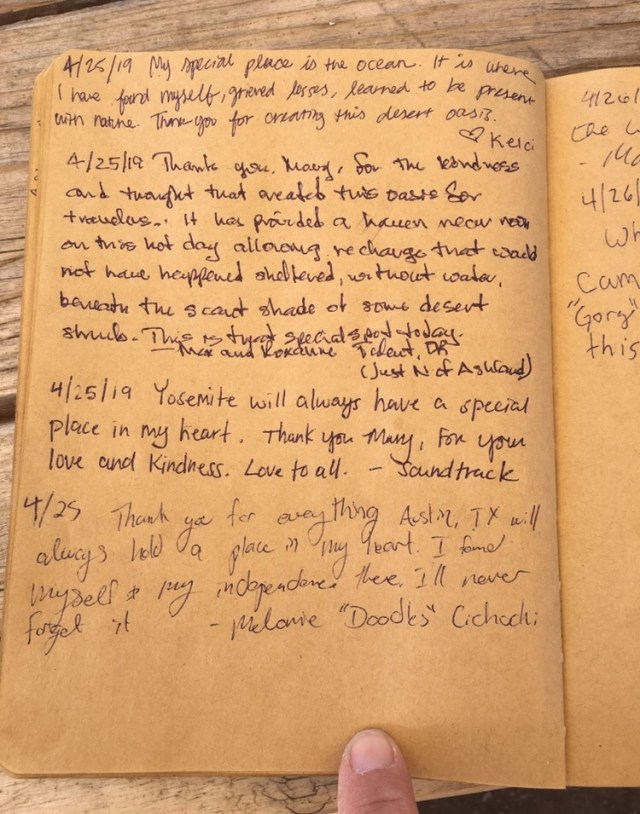 4/25/19 My special place is the ocean. It is where
I have found myself, grieved losses, learned to be present
with nature. Thank you for creating this desert oasis.
♡ Kelci
4/25/19 Thanks you, Mary, for the kindness
and thought that created this oasis for
travelers. It has provided a haven near noon
on this hot day allowing recharge that would
not have happened sheltered, without water,
beneath the scant shade of some desert
shrub. This is that special spot today.
— Max and Roxanne Talent, OR
(Just N of Ashland)
4/25/19 Yosemite will always have a special
place in my heart. Thank you Mary, For your
love and Kindness. Love to all. - Soundtrack
4/25 Thank you for everything Austin, TX will
always hold a place in my heart. I found
myself & my independence there. I'll never
forget it - Melanie "Doodles"
4/26/
the
4/26/
Wh
Cam
"Gorg"
this